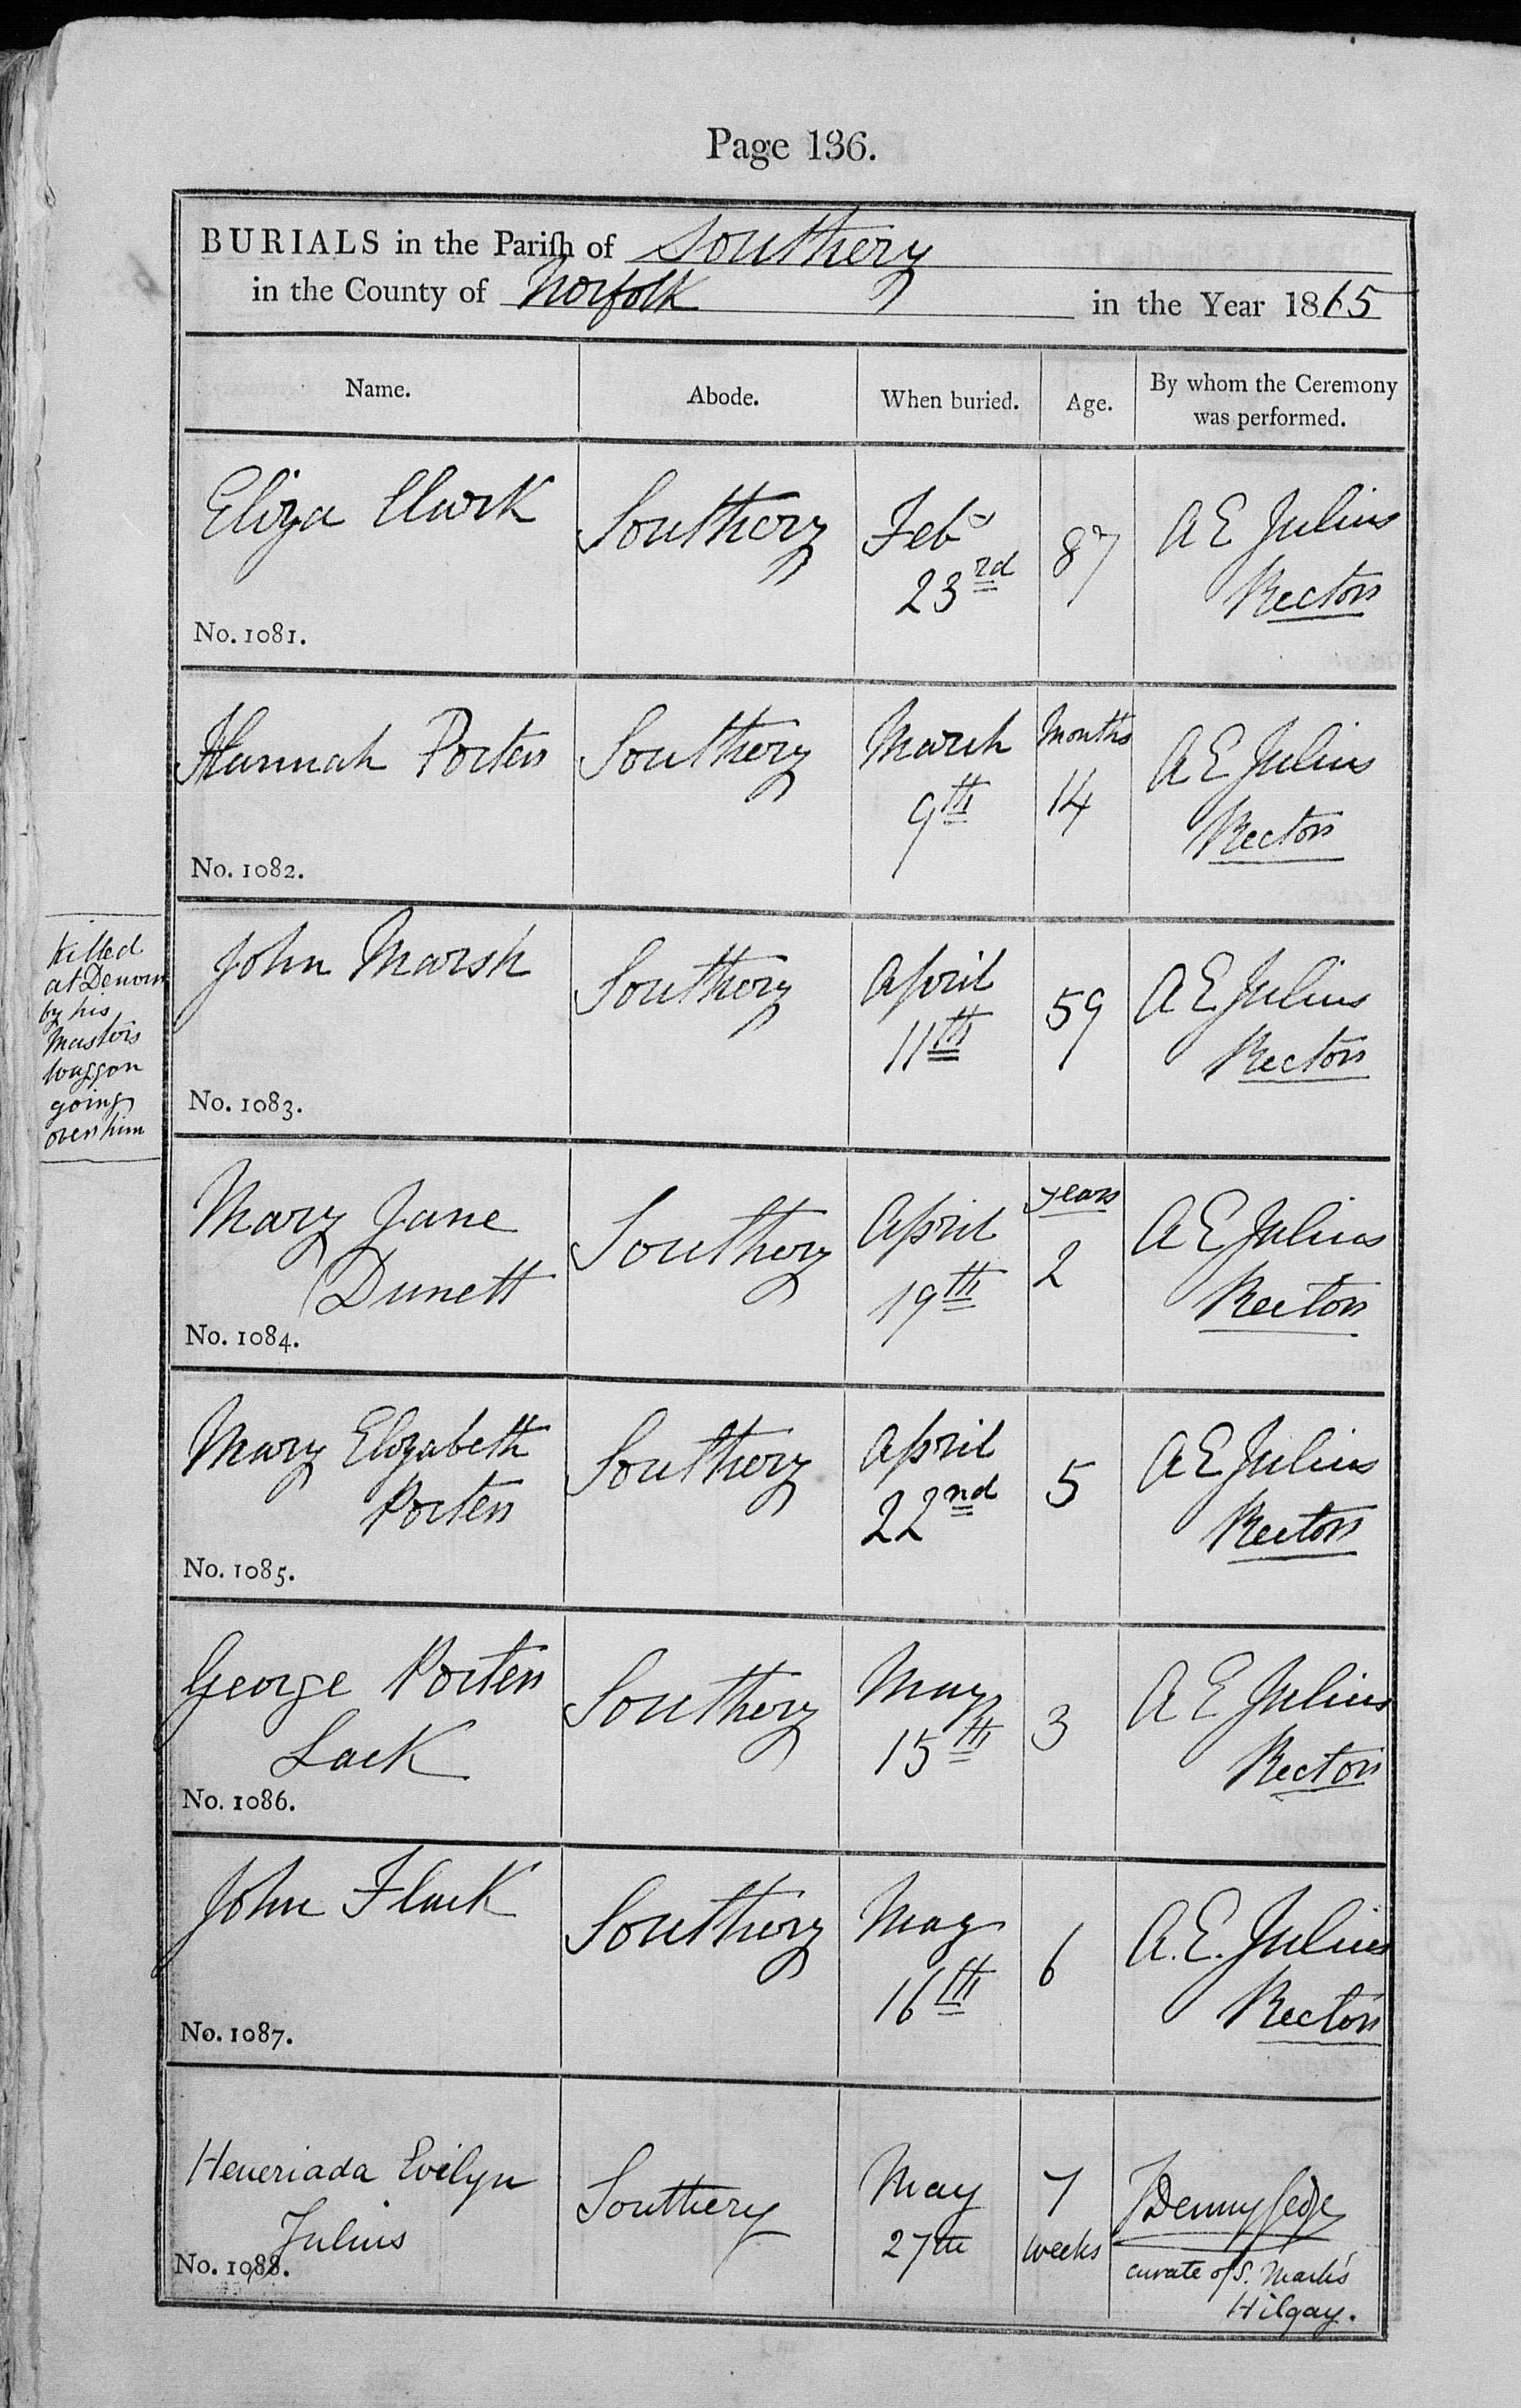 Page 136.
BURIALS in the Pariſh of Southery
in the County of Norfolk in the Year 1865
Name. Abode. When buried. Age. By whom the Ceremony was performed.
Eliza Clark Southery Feby 23rd 87 A E Julius Rector
No. 1081.
Hannah Porter Southery March 9th Months 14 A E Julius Rector
No. 1082.
Killed
at Denver
by his
Masters
waggon
going
over him
John Marsh Southery April 11th 59 A E Julius Rector
No. 1083.
Mary Jane Southery April years A E Julius
Dunett 19th 2 Rector
No. 1084.
Mary Elizabeth Southery April 5 A E Julius
Porter 22nd Rector
No. 1085.
George Porter Southery May 3 A E Julius
Lack 15th Rector
No. 1086.
John Flack Southery May 6 A. E. Julius
16th Rector
No. 1087.
Heneriada Evilyn Southery May 7 J Denny Gedge
Julius 27th weeks curate of S. Mark's
No. 1088. Hilgay.